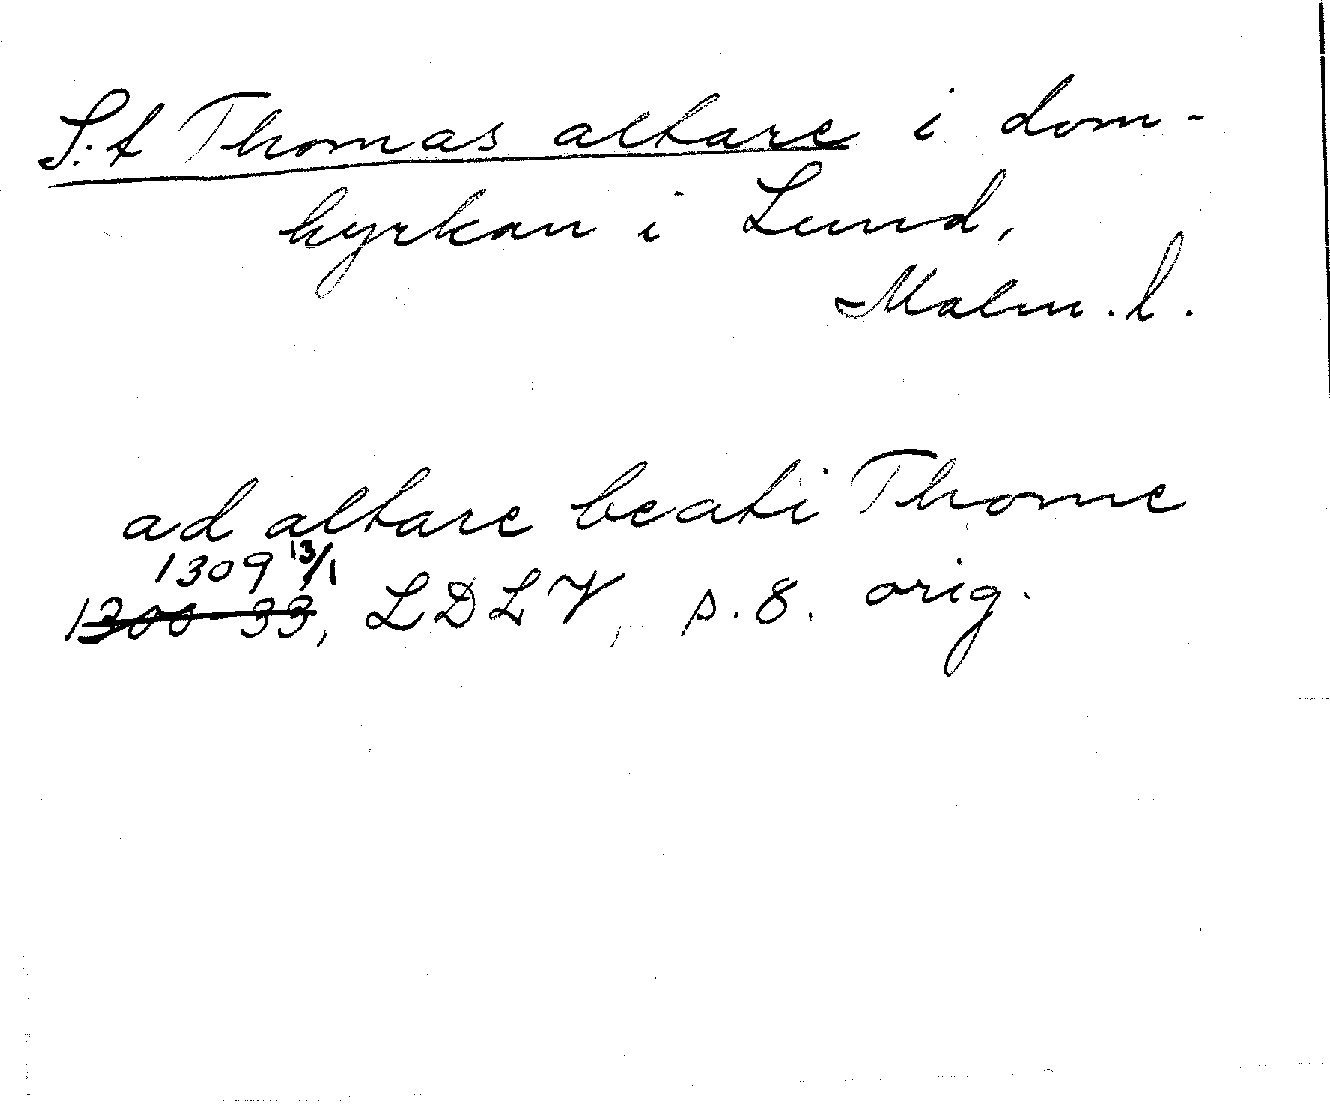 S:t Thomas altare i dom-
kyrkan i Lund,
Malm. l.
ad altare beati Thome
1309 13/1
1300-33, LDLV, s. 8. orig.